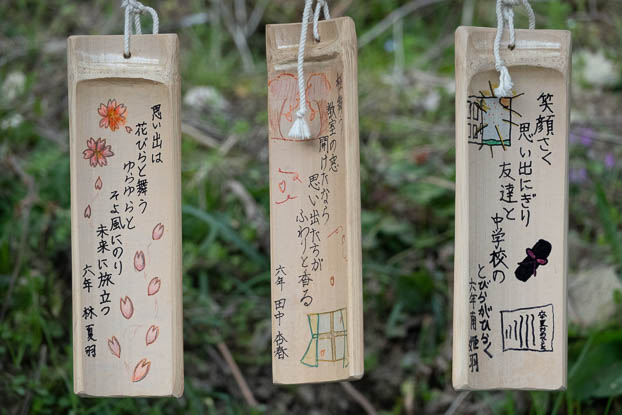 思い出は
花びらと舞う
ゆらゆらと
そよ風にのり
未来に旅立つ
六年 林 夏羽
教室の窓
開けたなら
思い出たちが
ふわりと香る
六年 田中 杏春
笑顔さく
思い出にぎり
友達と
中学校の
とびらがひらく
六年